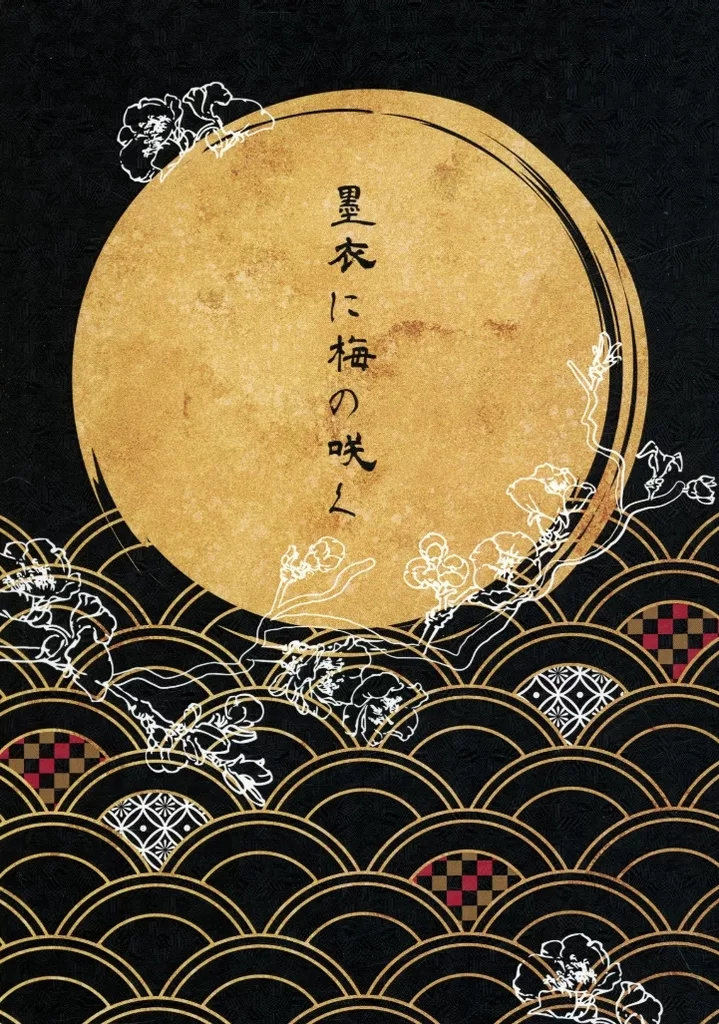 墨衣に梅の咲く